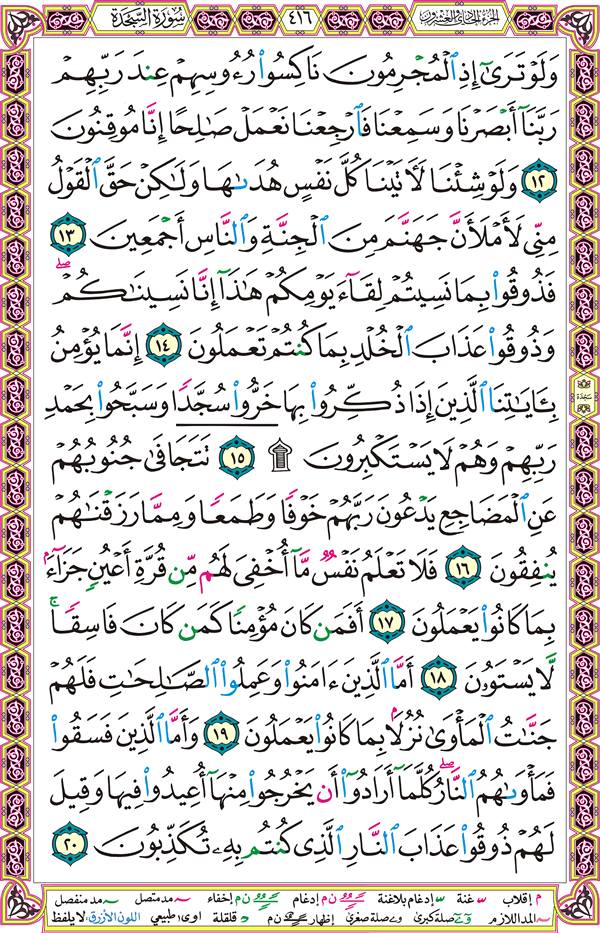 الجزء الحادي والعشرون ٤١٦ سُورَةُ السَّجْدَةِ
وَلَوْ تَرَىٰٓ إِذِ ٱلْمُجْرِمُونَ نَاكِسُوا۟ رُءُوسِهِمْ عِندَ رَبِّهِمْ
رَبَّنَآ أَبْصَرْنَا وَسَمِعْنَا فَٱرْجِعْنَا نَعْمَلْ صَٰلِحًا إِنَّا مُوقِنُونَ
١٢ وَلَوْ شِئْنَا لَءَاتَيْنَا كُلَّ نَفْسٍ هُدَىٰهَا وَلَٰكِنْ حَقَّ ٱلْقَوْلُ
مِنِّى لَأَمْلَأَنَّ جَهَنَّمَ مِنَ ٱلْجِنَّةِ وَٱلنَّاسِ أَجْمَعِينَ ١٣
فَذُوقُوا۟ بِمَا نَسِيتُمْ لِقَآءَ يَوْمِكُمْ هَٰذَآ إِنَّا نَسِينَٰكُمْ ۖ
وَذُوقُوا۟ عَذَابَ ٱلْخُلْدِ بِمَا كُنتُمْ تَعْمَلُونَ ١٤ إِنَّمَا يُؤْمِنُ
بِـَٔايَٰتِنَا ٱلَّذِينَ إِذَا ذُكِّرُوا۟ بِهَا خَرُّوا۟ سُجَّدًا وَسَبَّحُوا۟ بِحَمْدِ
رَبِّهِمْ وَهُمْ لَا يَسْتَكْبِرُونَ ۩ ١٥ تَتَجَافَىٰ جُنُوبُهُمْ
عَنِ ٱلْمَضَاجِعِ يَدْعُونَ رَبَّهُمْ خَوْفًا وَطَمَعًا وَمِمَّا رَزَقْنَٰهُمْ
يُنفِقُونَ ١٦ فَلَا تَعْلَمُ نَفْسٌ مَّآ أُخْفِىَ لَهُم مِّن قُرَّةِ أَعْيُنٍ جَزَآءًۢ
بِمَا كَانُوا۟ يَعْمَلُونَ ١٧ أَفَمَن كَانَ مُؤْمِنًا كَمَن كَانَ فَاسِقًا ۚ
لَّا يَسْتَوُۥنَ ١٨ أَمَّا ٱلَّذِينَ ءَامَنُوا۟ وَعَمِلُوا۟ ٱلصَّٰلِحَٰتِ فَلَهُمْ
جَنَّٰتُ ٱلْمَأْوَىٰ نُزُلًۢا بِمَا كَانُوا۟ يَعْمَلُونَ ١٩ وَأَمَّا ٱلَّذِينَ فَسَقُوا۟
فَمَأْوَىٰهُمُ ٱلنَّارُ ۖ كُلَّمَآ أَرَادُوٓا۟ أَن يَخْرُجُوا۟ مِنْهَآ أُعِيدُوا۟ فِيهَا وَقِيلَ
لَهُمْ ذُوقُوا۟ عَذَابَ ٱلنَّارِ ٱلَّذِى كُنتُم بِهِۦ تُكَذِّبُونَ ٢٠
سجدة
م إقلاب غنة إدغام بلاغنة ن م إدغام ن م إخفاء مد متصل مد منفصل
المد اللازم صلة كبرى صلة صغرى إظهار ن م قلقلة اوى طبيعي اللون الأزرق: لا يلفظ